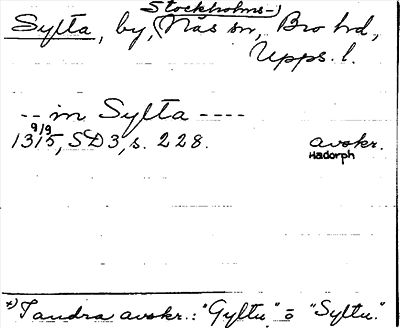 Stockholms-)
Sylta, by, (Näs sn, Bro hd,
Upps. l.
-- in Sylta ----
9/9
1315, SD 3, s. 228. avskr.
Hadorph
*) I andra avskr.: "Gyltu" o "Syltu."